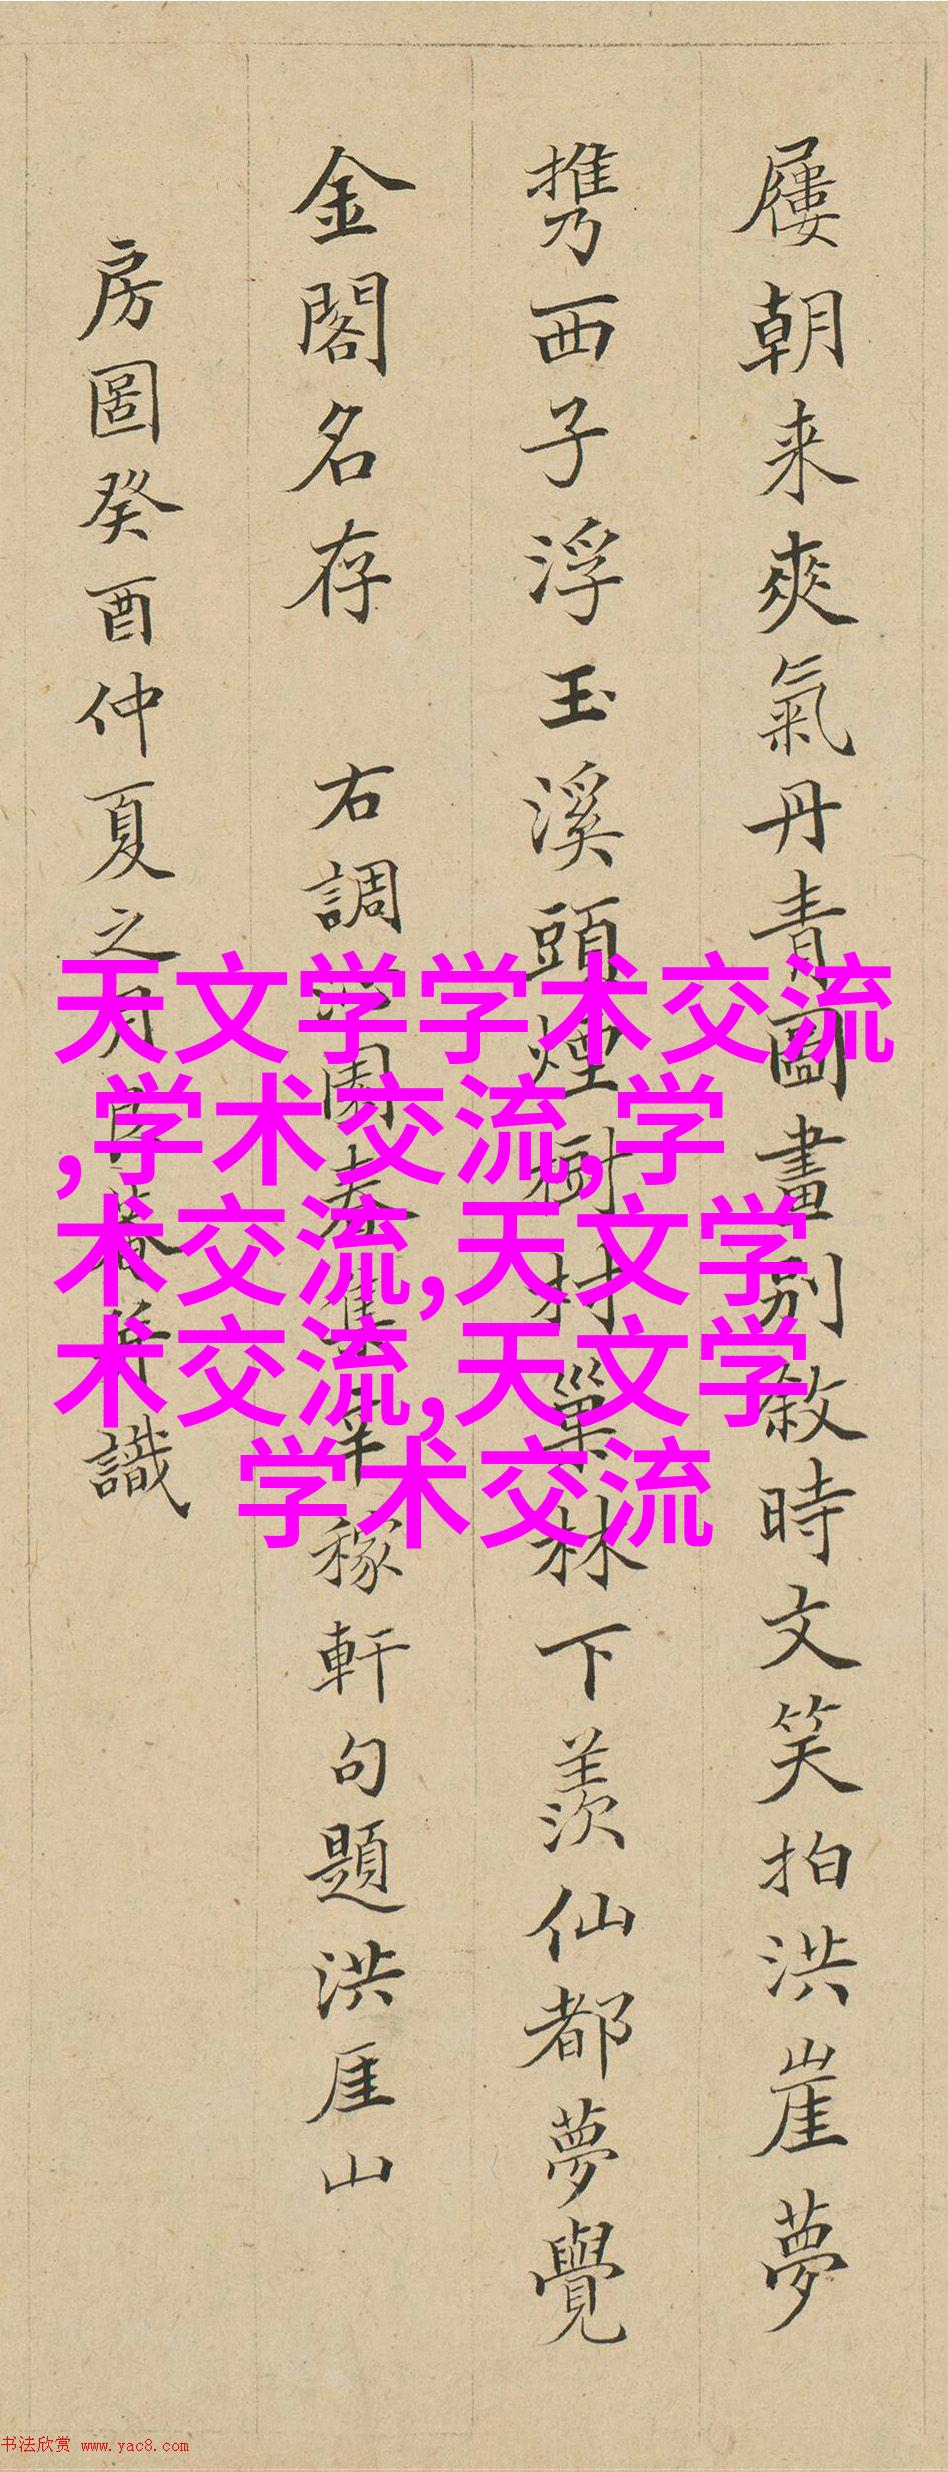 屨朝来爽氣丹青圖畫别敘時文笑拍洪崖夢
携西子浮玉溪頭煙樹村巢林下羨仙都夢覺
金閣名存 右調 園春集辛稼軒句題洪厓山
房圖癸酉仲夏之月 菴 識
天文学学术交流
,学术交流,学
术交流,天文学
术交流,天文学
学术交流
书法欣赏 www.yac8.com